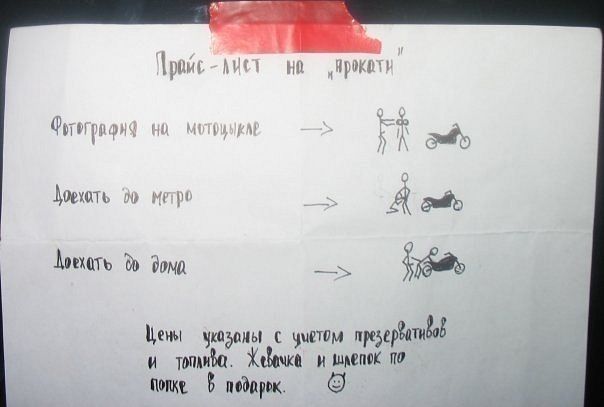 Прайс-лист на „прокати"
Фотография на мотоцыкле
Доехать до метро
Доехать до дома
Цены указаны с учетом презервативов
и топлива. Жевачка и шлепок по
попке в подарок.